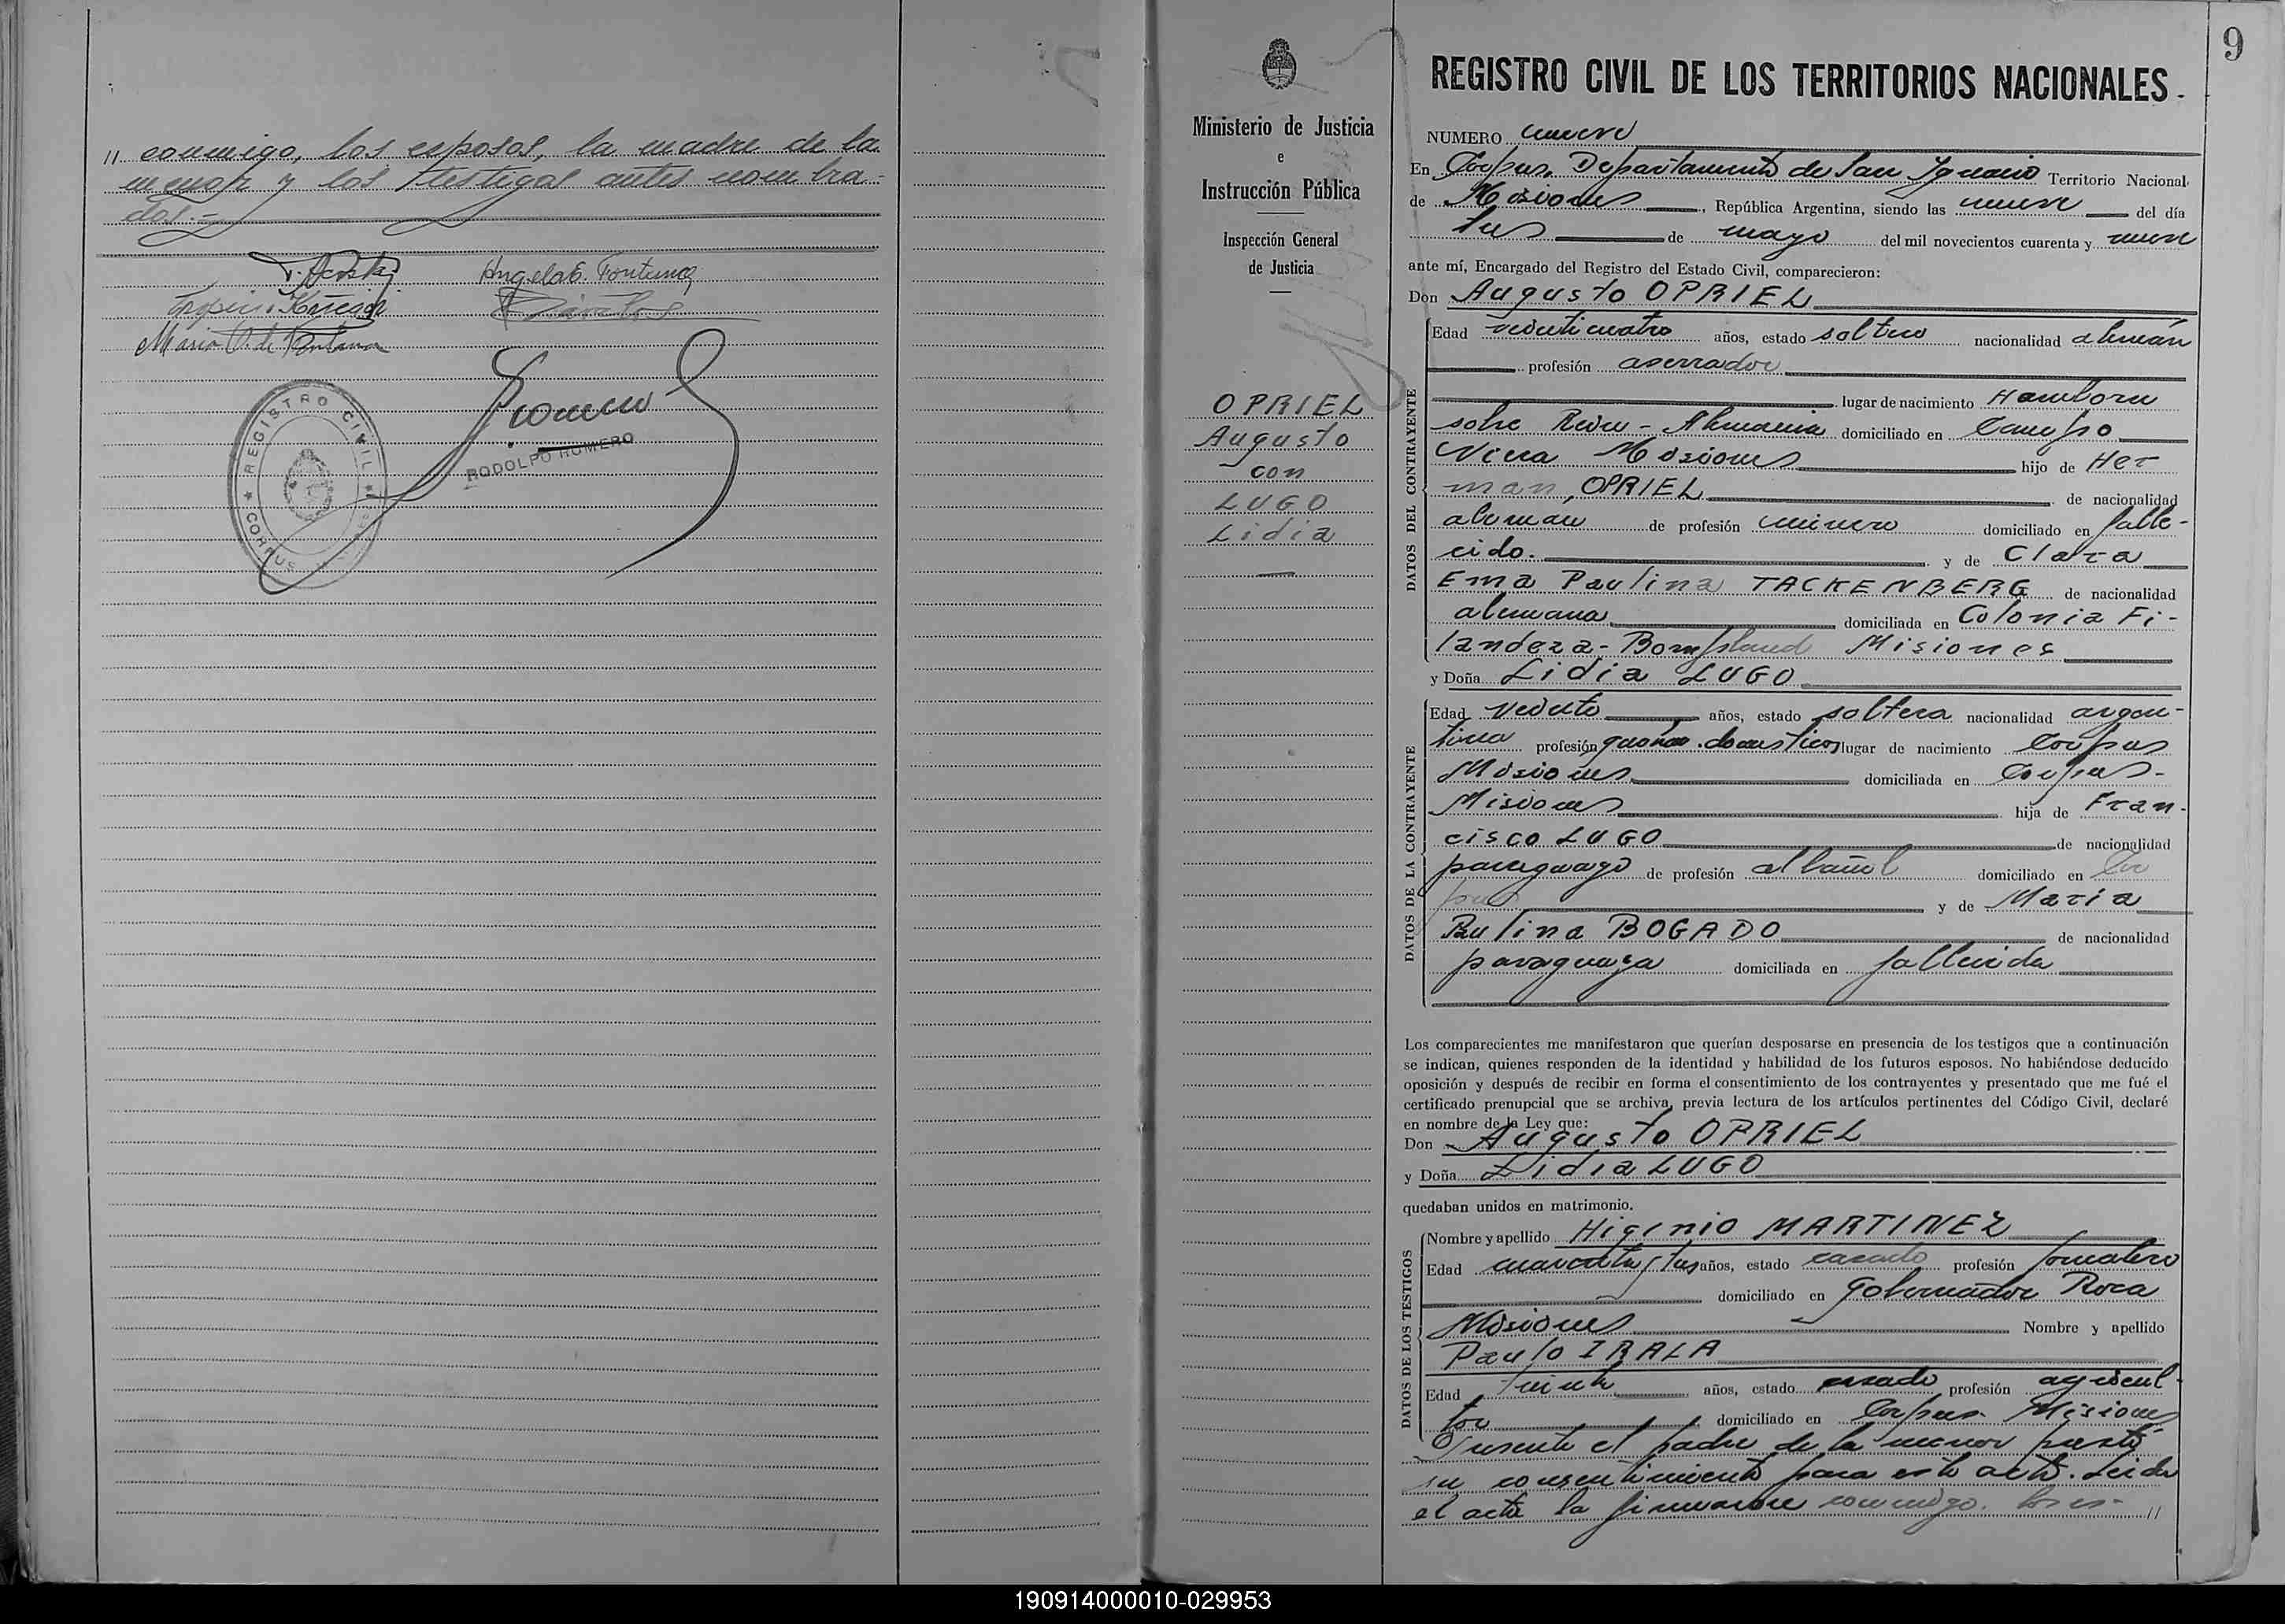 " conmigo, los esposos, la madre de la
menor y los testigos antes nombra-
dos.=
Angela E. Fontana
Maria V. de Fontana
REGISTRO CIVIL
CORPUS
RODOLFO ROMERO
Ministerio de Justicia
e
Instrucción Pública
Inspección General
de Justicia
OPRIEL
Augusto
con
LUGO
Lidia
9
REGISTRO CIVIL DE LOS TERRITORIOS NACIONALES
NUMERO nueve
En Corpus, Departamento de San Ignacio Territorio Nacional
de Misiones, República Argentina, siendo las nueve del día
tres de mayo del mil novecientos cuarenta y nueve
ante mí, Encargado del Registro del Estado Civil, comparecieron:
Don Augusto OPRIEL
DATOS DEL CONTRAYENTE
Edad veinticuatro años, estado soltero nacionalidad alemán
profesión aserrador
lugar de nacimiento Hamborn
sobre Rein - Alemania domiciliado en Campo
Viera Misiones hijo de Her
man, OPRIEL de nacionalidad
aleman de profesión minero domiciliado en falle-
cido. y de Clara
Ema Paulina TACKENBERG de nacionalidad
alemana domiciliada en Colonia Fi-
landeza - Bompland Misiones
y Doña Lidia LUGO
DATOS DE LA CONTRAYENTE
Edad veinte años, estado soltera nacionalidad argen-
tina profesión domesticos lugar de nacimiento Corpus
Misiones domiciliada en Corpus-
Misiones hija de Fran-
cisco LUGO de nacionalidad
paraguayo de profesión albañil domiciliado en Cor
pus y de Maria
Paulina BOGADO de nacionalidad
paraguaya domiciliada en fallecida
Los comparecientes me manifestaron que querían desposarse en presencia de los testigos que a continuación
se indican, quienes responden de la identidad y habilidad de los futuros esposos. No habiéndose deducido
oposición y después de recibir en forma el consentimiento de los contrayentes y presentado que me fué el
certificado prenupcial que se archiva, previa lectura de los artículos pertinentes del Código Civil, declaré
en nombre de la Ley que:
Don Augusto OPRIEL
y Doña Lidia LUGO
quedaban unidos en matrimonio.
DATOS DE LOS TESTIGOS
Nombre y apellido Higinio MARTINEZ
Edad cuarentitres años, estado casado profesión jornalero
domiciliado en Gobernador Roca
Misiones Nombre y apellido
Paulo IRALA
Edad treinta años, estado casado profesión agricul-
tor domiciliado en Corpus- Misiones
Presente el padre de la menor presta
su consentimiento para este acto. Leida
el acta la firmaron conmigo. los es- "
190914000010-029953